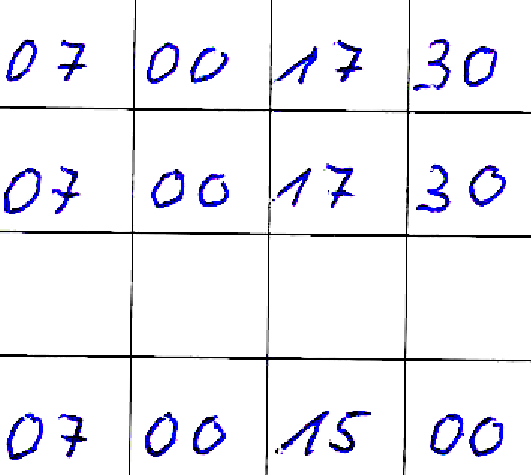 07 00 17 30
07 00 17 30
07 00 15 00